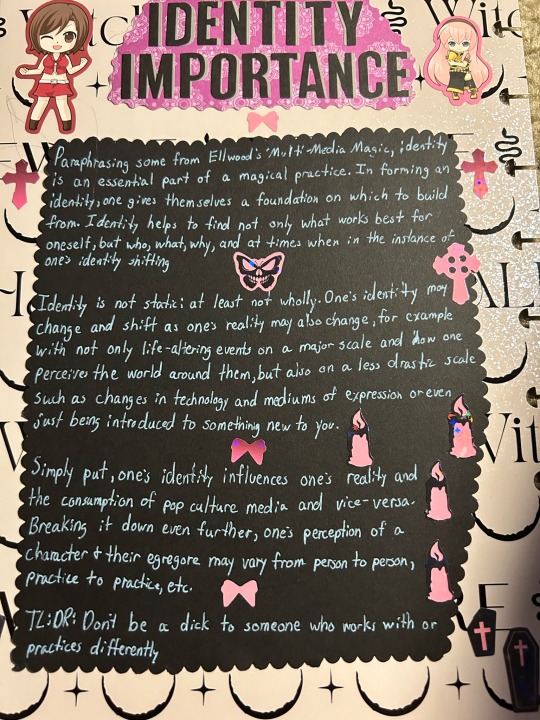 IDENTITY
IMPORTANCE
Paraphrasing some from Ellwood's Multi-Media Magic, identity
is an essential part of a magical practice. In forming an
identity, one gives themselves a foundation on which to build
from. Identity helps to find not only what works best for
oneself, but who, what, why, and at times when in the instance of
one's identity shifting
Identity is not static; at least not wholly. One's identity may
change and shift as one's reality may also change, for example
with not only life-altering events on a major scale and how one
perceives the world around them, but also on a less drastic scale
such as changes in technology and mediums of expression or even
just being introduced to something new to you.
Simply put, one's identity influences one's reality and
the consumption of pop culture media and vice-versa.
Breaking it down even further, one's perception of a
character & their egregore may vary from person to person,
practice to practice, etc.
TL;DR: Don't be a dick to someone who works with or
practices differently